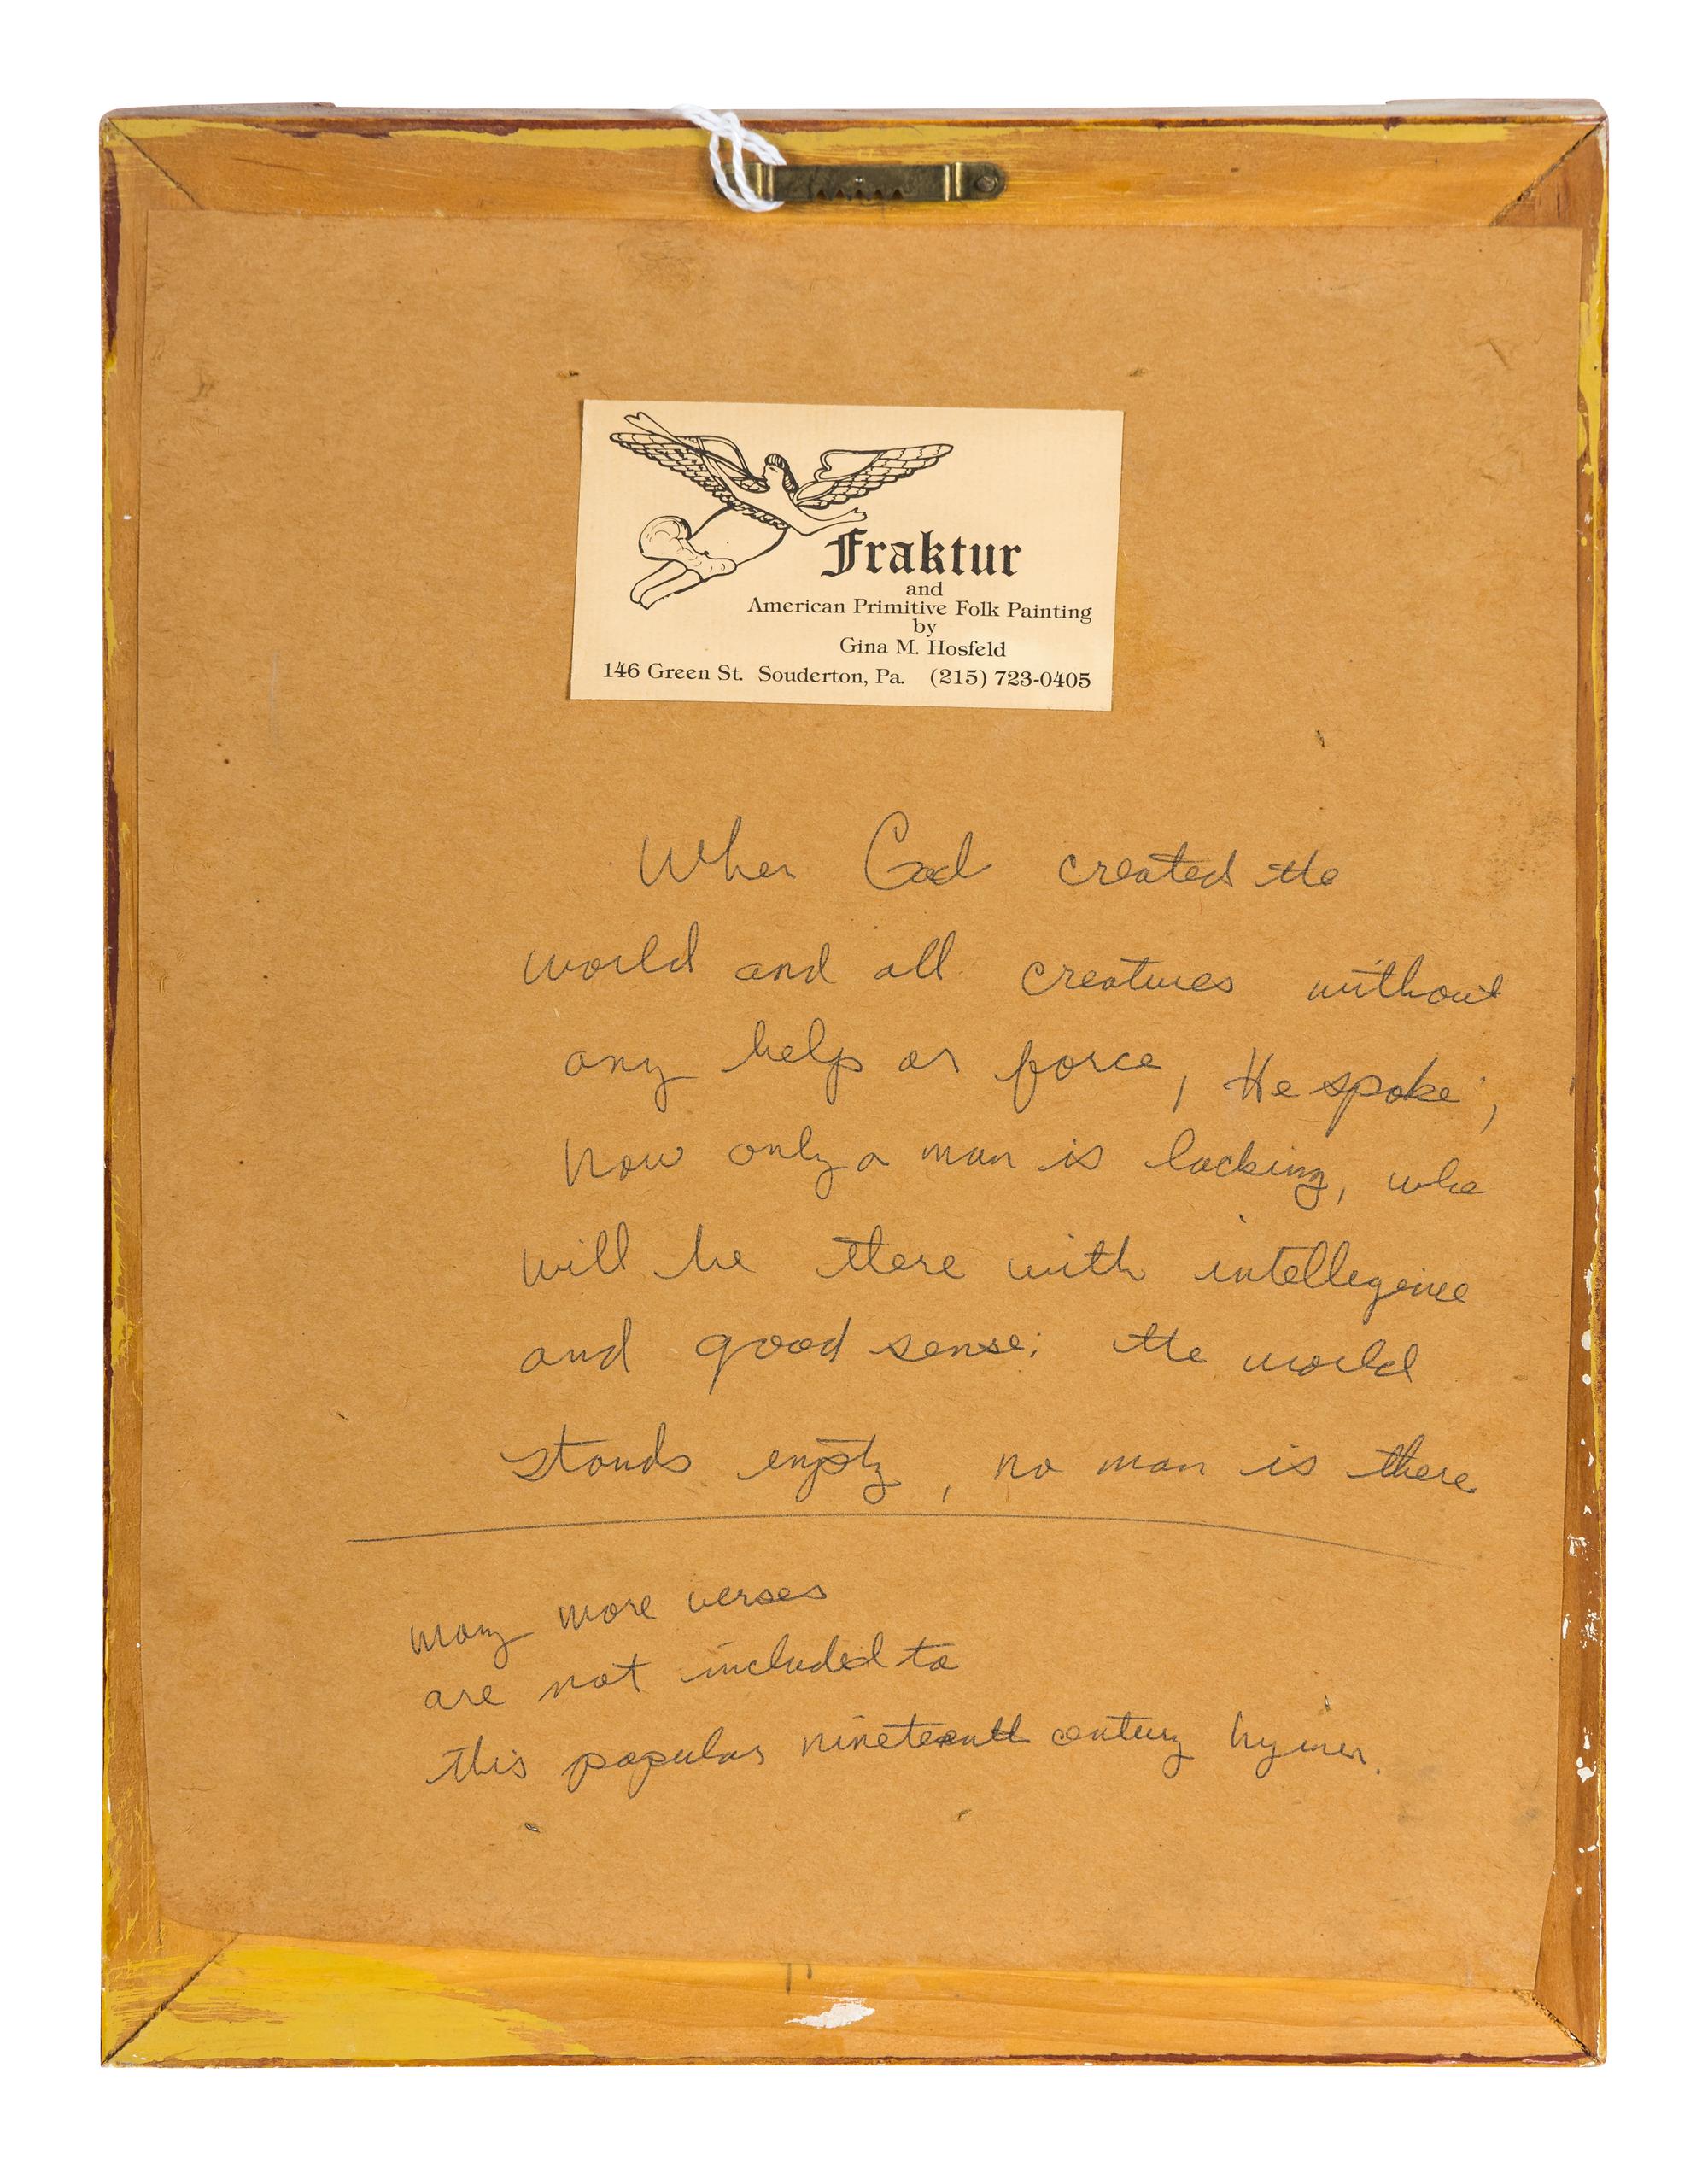 Fraktur
and
American Primitive Folk Painting
by
Gina M. Hosfeld
146 Green St. Souderton, Pa. (215) 723-0405
When God created the
world and all creatures without
any help or force, He spoke;
Now only a man is lacking, who
will be there with intellegence
and good sense; the world
stands empty, no man is there
many more verses
are not included to
this popular nineteenth century hymn.